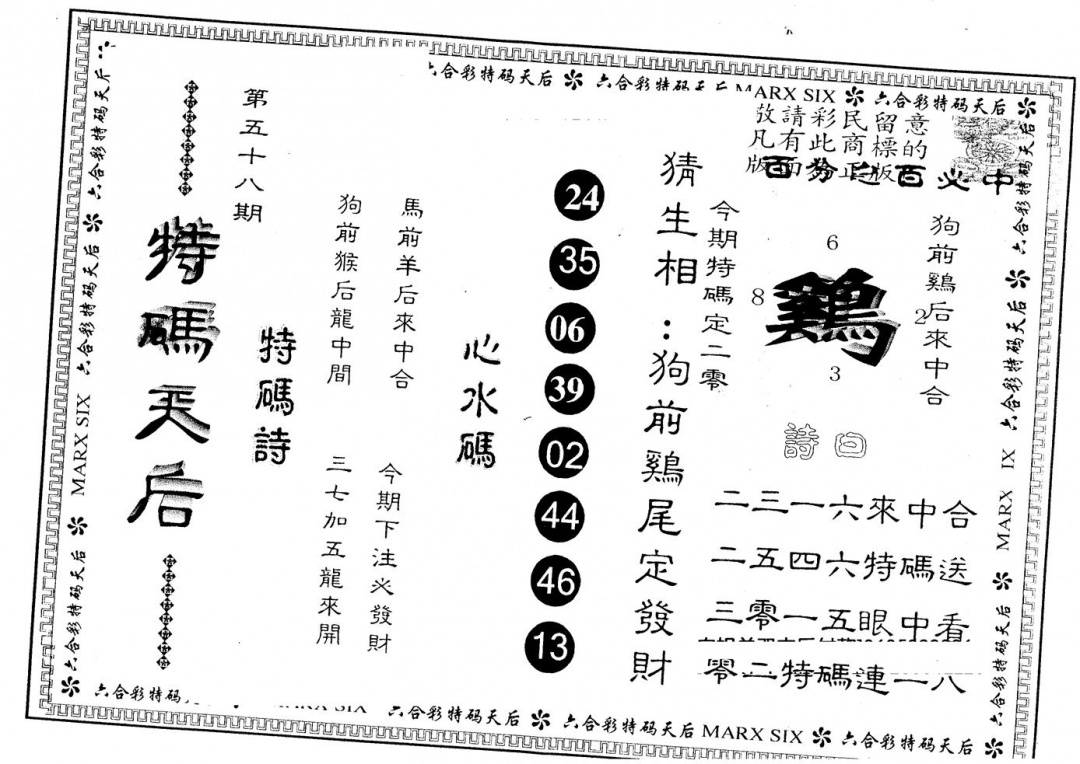 六合彩特码天后 六合彩特码 MARX SIX 六合彩特码天后
敬請彩民留意
凡有此商標的
版面 正版
百份之百必中
第五十八期
特碼天后
特碼詩
馬前羊后來中合
狗前猴后龍中間
今期下注必發財
三七加五龍來開
心水碼
24
35
06
39
02
44
46
13
猜生相：狗前雞尾定發財
今期特碼定二零
狗前鷄后來中合
6
8 鷄 2
3
詩曰
二三一六來中合
二五四六特碼送
三零一五眼中看
零二特碼連一八
六合彩特码天后 MARX SIX 六合彩特码天后 六合彩特码天后
六合彩特码天后 六合彩特码天后 MARX IX 六合彩特码天后
六合彩特码 六合彩特码天后 六合彩特码天后 MARX SIX 六合彩特码天后